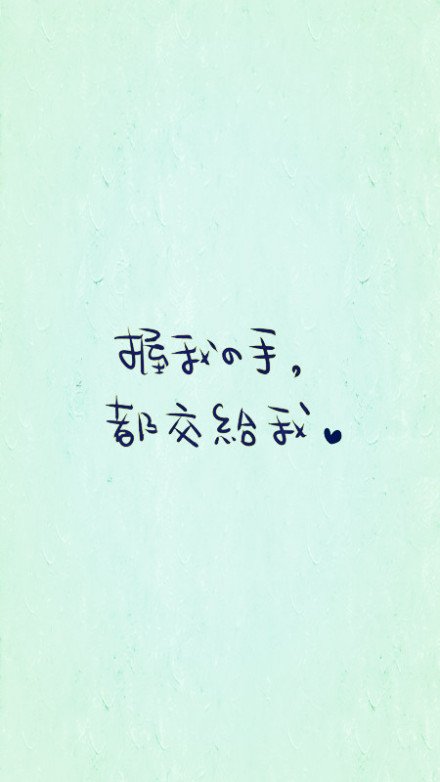 握我の手,
都交給我.